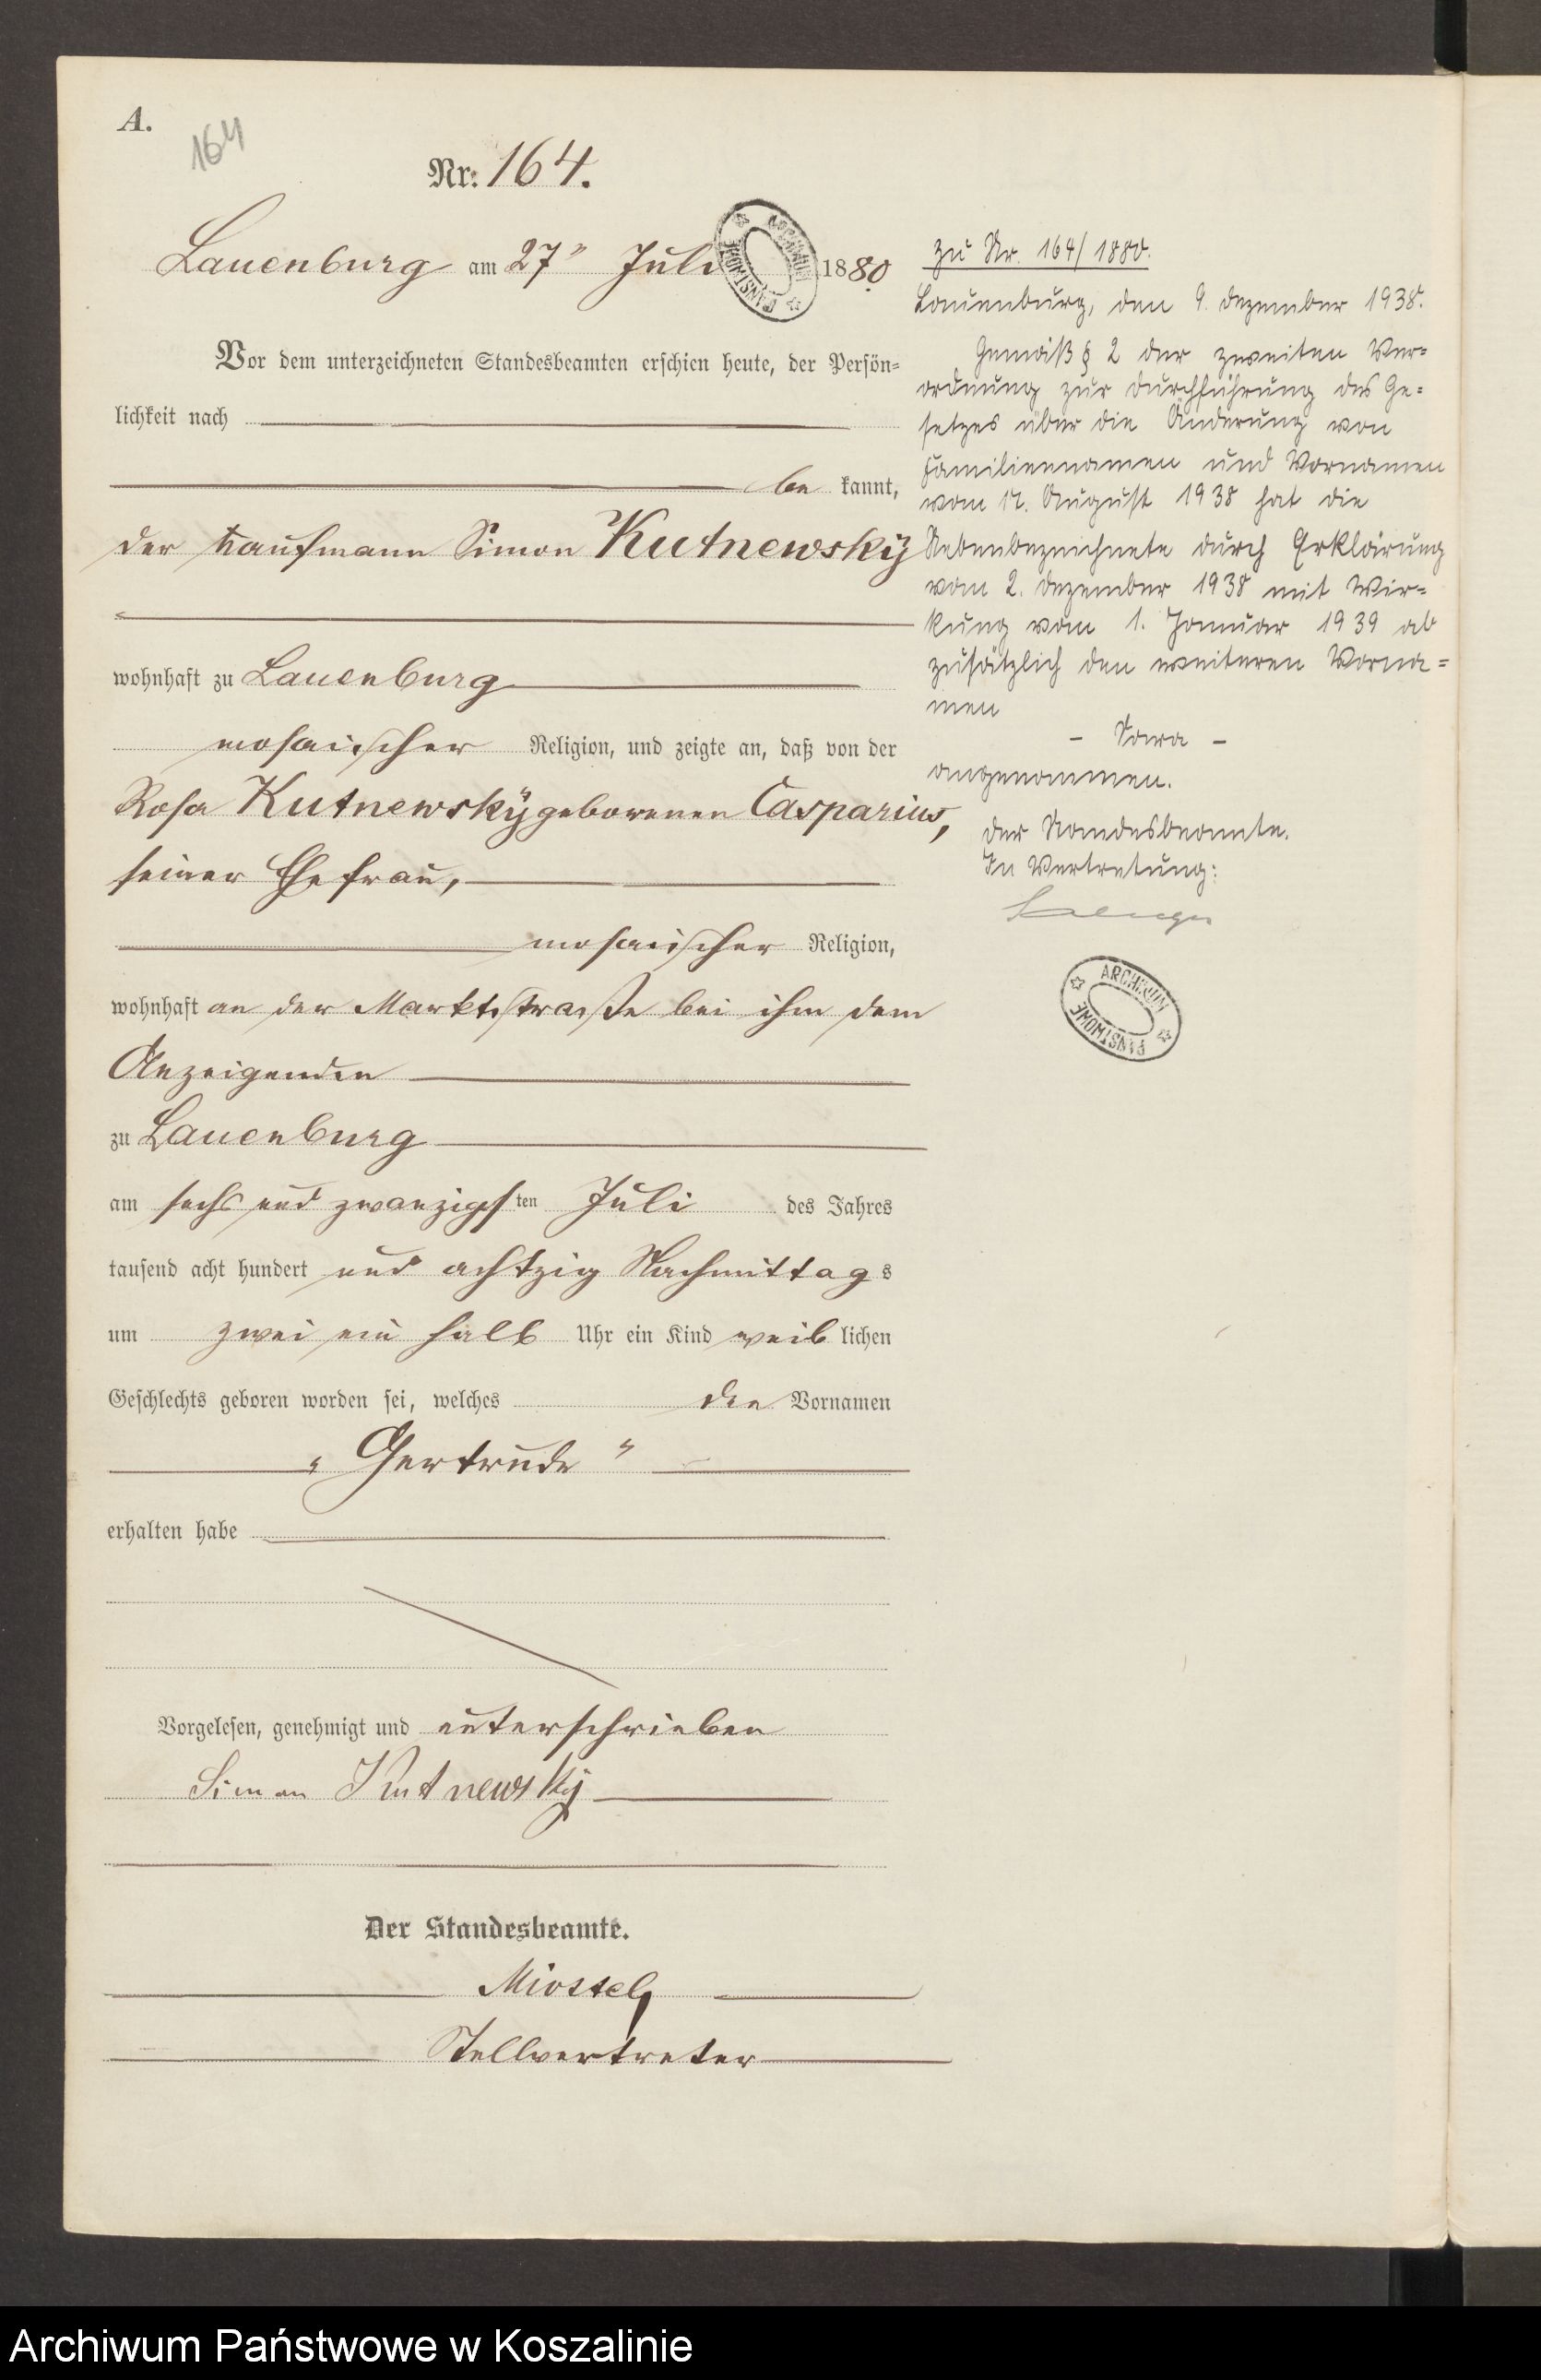 A.
164
Nr. 164.
Lauenburg am 27" Juli 1880
Vor dem unterzeichneten Standesbeamten erschien heute, der Persön=
lichkeit nach
be kannt,
der Kaufmann Simon Kutnewsky
wohnhaft zu Lauenburg
mosaischer Religion, und zeigte an, daß von der
Rosa Kutnewsky geborenen Casparius,
seiner Ehefrau,
mosaischer Religion,
wohnhaft an der Marktstraße bei ihm dem
Anzeigenden
zu Lauenburg
am sechs und zwanzigsten Juli des Jahres
tausend acht hundert und achtzig Nachmittags
um zwei ein halb Uhr ein Kind weiblichen
Geschlechts geboren worden sei, welches den Vornamen
„Gertrude"
erhalten habe
Vorgelesen, genehmigt und unterschrieben
Simon Kutnewsky
Der Standesbeamte.
Stellvertreter
zu Nr. 164/1880.
Lauenburg, den 9. Dezember 1938.
Gemäß § 2 der zweiten Ver=
ordnung zur Durchführung des Ge=
setzes über die Änderung von
Familiennamen und Vornamen
vom 17. August 1938 hat die
Nebenbezeichnete durch Erklärung
vom 2. Dezember 1938 mit Wir=
kung vom 1. Januar 1939 ab
zusätzlich den weiteren Vorna=
men
- Sara -
angenommen.
Der Standesbeamte.
In Vertretung:
ARCHIWUM PAŃSTWOWE
ARCHIWUM PAŃSTWOWE
Archiwum Państwowe w Koszalinie